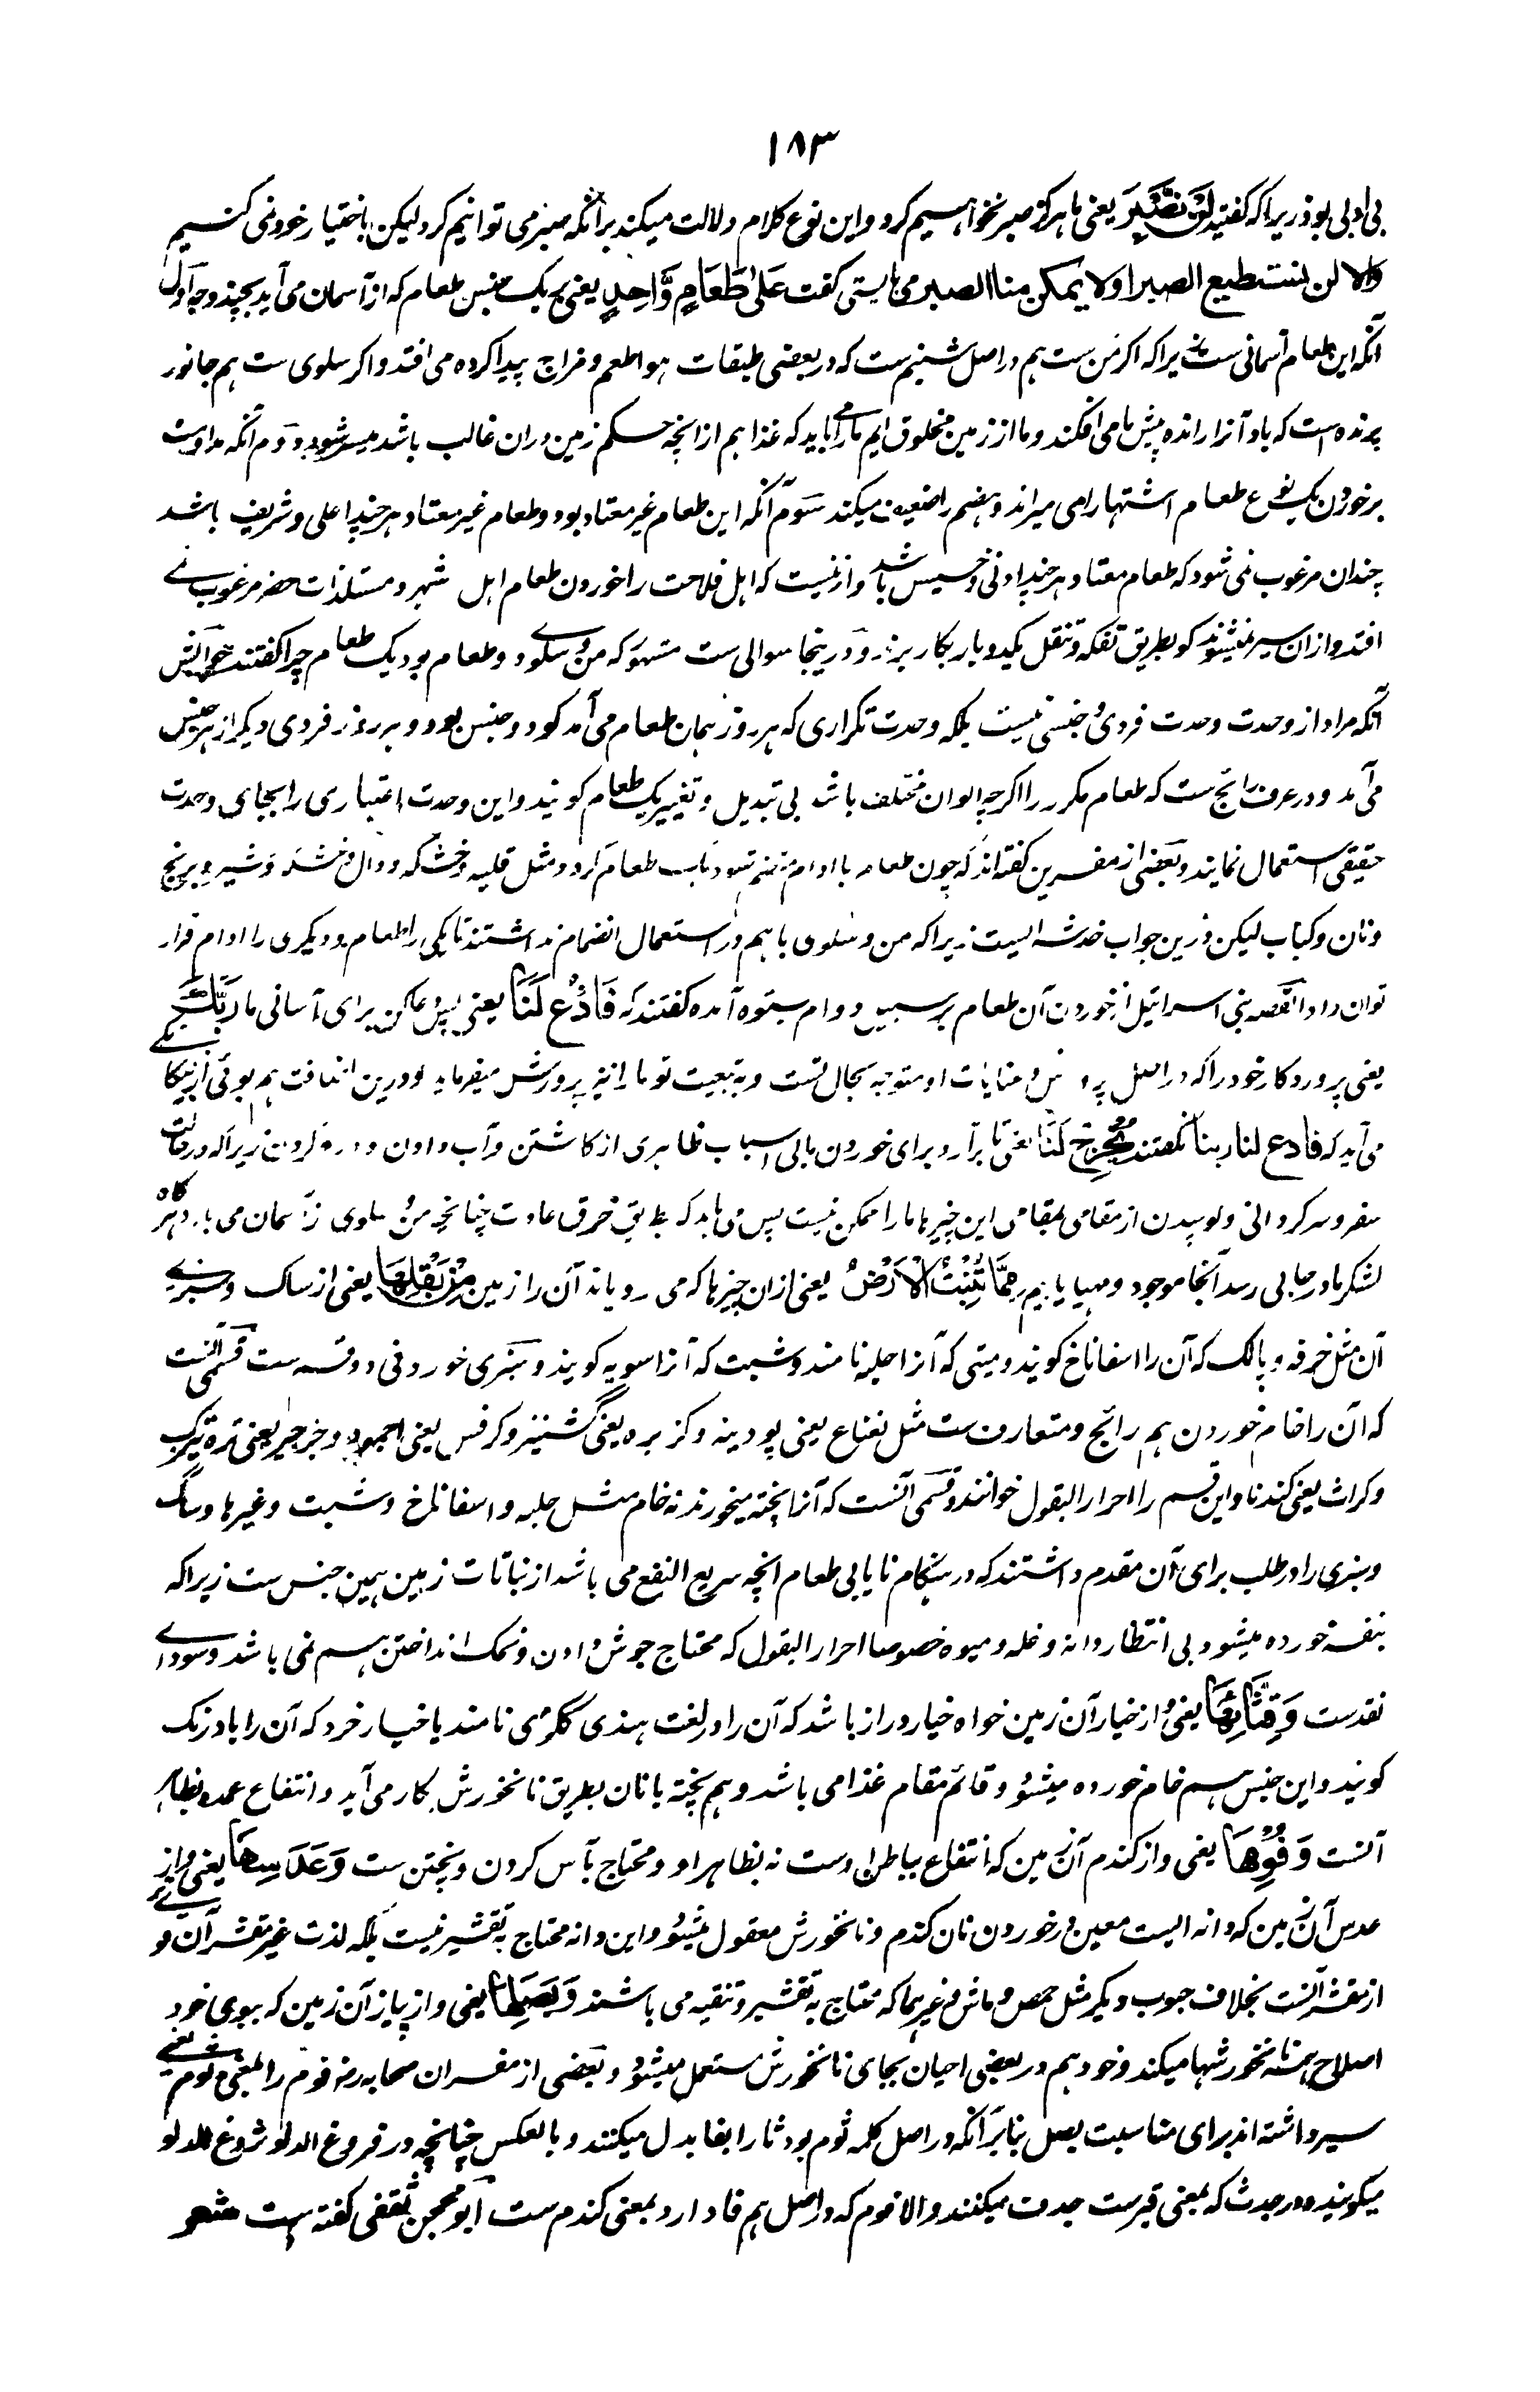 ۱۸۳
بی ادبی بود زیرا که گفتید لَنْ نَصْبِرَ یعنی ما هرگز صبر نخواهیم کرد و این نوع کلام دلالت میکند بر آنکه صبر می توانیم کرد لیکن باختیار خود نمی کنیم
والا لن نستطیع الصبر او لا یمکن منا الصبر می بایستی گفت عَلَىٰ طَعَامٍ وَّاحِدٍ یعنی بر یک جنس طعام که از آسمان می آید بچند وجه اول
آنکه این طعام آسمانی ست زیرا که اگر من ست هم در اصل شبنم ست که در بعضی طبقات هوا طعم و مزاج پیدا کرده می افتد و اگر سلوی ست هم جانور
پرنده است که باد آنرا رانده پیش ما می افکند و ما از زمین مخلوق ایم ما را می باید که غذا هم از انچه حکم زمین دران غالب باشد میسر شود دوم آنکه مداومت
بر خوردن یک نوع طعام اشتها را می میراند و هضم را ضعیف میکند سوم آنکه این طعام غیر معتاد بود و طعام غیر معتاد هر چند اعلی و شریف باشد
چندان مرغوب نمی شود که طعام معتاد هر چند ادنی و خسیس باشد و ازینست که اهل فلاحت را خوردن طعام اهل شهر و مستلذات حضر مرغوب نمی
افتد و ازان سیر نمیشوند گو بطریق تفکه و تنقل یکدو بار بکار برند و درینجا سوالی ست مشهور که من و سلوی دو طعام بود یک طعام چرا گفتند جوابش
آنکه مراد از وحدت وحدت فردی و جنسی نیست بلکه وحدت تکراری که هر روز همان طعام می آمد گو دو جنس بود و هر روز فردی دیگر از هر جنس
می آمد و در عرف رائج ست که طعام مکرر را اگر چه الوان مختلف باشد بی تبدیل و تغییر یک طعام گویند و این وحدت اعتباری را بجای وحدت
حقیقی استعمال نمایند و بعضی از مفسرین گفته اند که چون طعام با ادام منضم شود یک طعام گردد مثل قلیه و خشکه و دال و خشکه و شیر و برنج
و نان و کباب لیکن درین جواب خدشه ایست زیرا که من و سلوی با هم در استعمال انضمام نداشتند تا یکی را طعام و دیگری را ادام قرار
توان داد القصه بنی اسرائیل از خوردن آن طعام بر سبیل دوام بستوه آمده گفتند که فَادْعُ لَنَا یعنی پس دعا کن برای آسانی ما رَبَّكَ
یعنی پروردگار خود را که در اصل پرورش و عنایات او متوجه بحال تست و به تبعیت تو ما را نیز پرورش میفرماید و درین اضافت هم بوئی از بیگانگی
می آید که فادع لنا ربنا نگفتند يُخْرِجْ لَنَا یعنی تا برآرد برای خوردن ما بی اسباب ظاهری از کاشتن و آب دادن و درو کردن زیرا که در حالت
سفر و سرگردانی و کوچیدن از مقامی بمقامی این چیزها ما را ممکن نیست پس می باید که بطریق خرق عادت چنانچه من و سلوی از آسمان می بارد هرگاه
لشکر ما در جایی رسد آنجا موجود و مهیا یابیم مِمَّا تُنْبِتُ الْأَرْضُ یعنی ازان چیزها که می رویاند آن را زمین مِنْ بَقْلِهَا یعنی از ساگ و سبزی
آن مثل خرفه و پالک که آن را اسفاناخ گویند و میتی که آنرا حلبه نامند و شبت که آنرا سویه گویند و سبزی خوردنی دو قسم ست قسمی آنست
که آن را خام خوردن هم رائج و متعارف ست مثل نعناع یعنی پودینه و کزبره یعنی گشنیز و کرفس یعنی اجمود و جرجیر یعنی تره تیزک
و کراث یعنی گندنا و این قسم را احرار البقول خوانند و قسمی آنست که آنرا پخته میخورند نه خام مثل حلبه و اسفاناخ و شبت و غیرها و ساگ
و سبزی را در طلب برای آن مقدم داشتند که در هنگام نایابی طعام انچه سریع النفع می باشد از نباتات زمین همین جنس ست زیرا که
بنفسه خورده میشود بی انتظار دانه و غله و میوه خصوصا احرار البقول که محتاج جوش دادن و نمک انداختن هم نمی باشد و سودای
نقدست وَقِثَّائِهَا یعنی و از خیار آن زمین خواه خیار دراز باشد که آن را در لغت هندی ککڑی نامند یا خیار خرد که آن را بادرنگ
گویند و این جنس هم خام خورده میشود و قائم مقام غذا می باشد و هم پخته با نان بطریق نانخورش بکار می آید و انتفاع عمده بظاهر
آنست وَفُوْمِهَا یعنی و از گندم آن زمین که انتفاع بباطن اوست نه بظاهر او و محتاج به آس کردن و پختن ست وَعَدَسِهَا یعنی و از
عدس آن زمین که دانه ایست معین در خوردن نان گندم و نانخورش معقول میشود و این دانه محتاج به تقشیر نیست بلکه لذت غیر مقشر آن و
از مقشر آنست بخلاف حبوب دیگر مثل حمص و ماش و غیرهما که محتاج به تقشیر و تنقیه می باشند وَبَصَلِهَا یعنی و از پیاز آن زمین که ببوی خود
اصلاح همه نانخورشها میکند و خود هم در بعضی احیان بجای نانخورش مستعمل میشود و بعضی از مفسران صحابه رض فوم را بمعنی ثوم یعنی
سیر داشته اند برای مناسبت بصل بنابر آنکه در اصل کلمه ثوم بود ثا را بفا بدل میکنند و بالعکس چنانچه در فروغ الدلو ثروغ الدلو
میگویند و در جدث که بمعنی قبرست جدف میکنند والا فوم که در اصل هم فا دارد بمعنی گندم ست ابو محجن ثقفی گفته است شعر